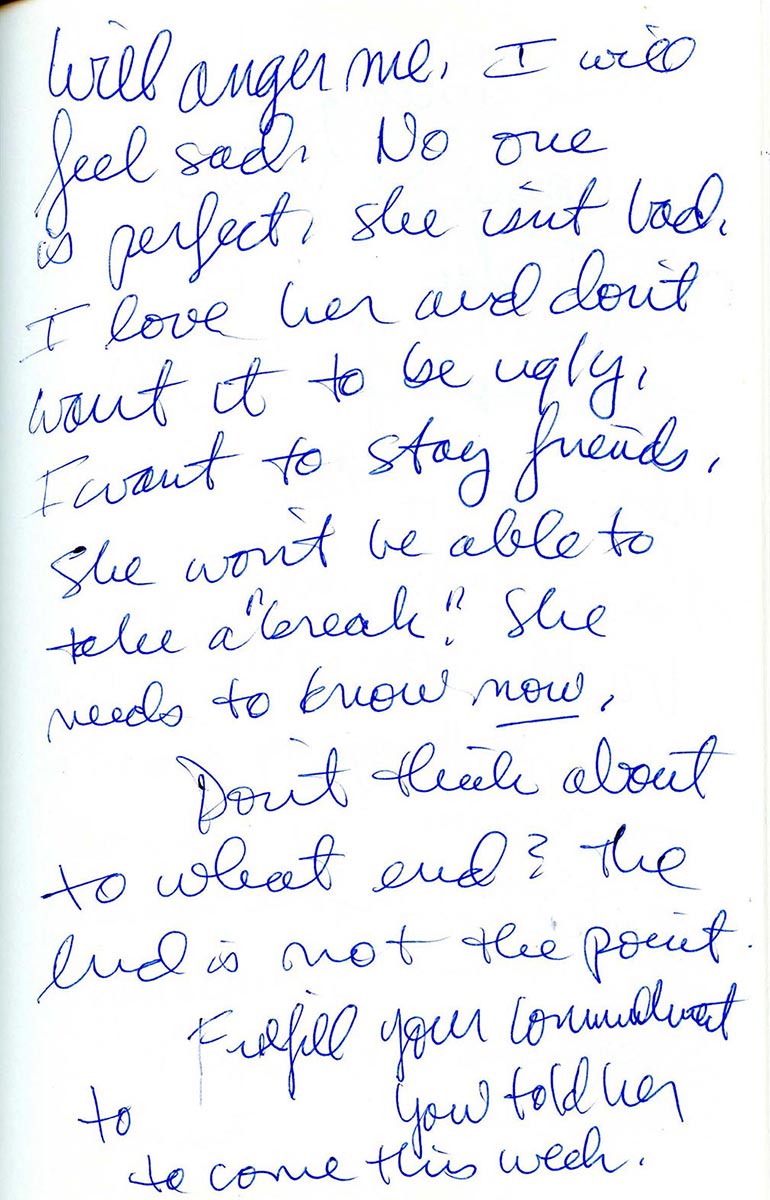 Will anger me. I will
feel sad. No one
is perfect. She isn't bad.
I love her and don't
want it to be ugly.
I want to stay friends.
She won't be able to
take a "break". She
needs to know now.
Don't think about
to what end? The
end is not the point.
Fulfill your commitment
to You told her
to come this week.